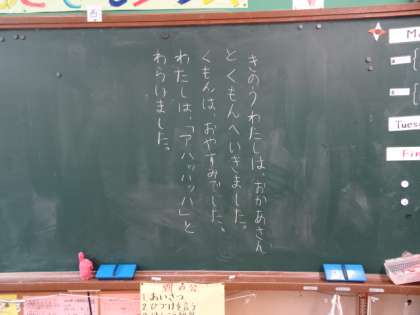 きのうわたしは、おかあさん
とくもんへいきました。
くもんは、おやすみでした。
わたしは、「アハッハッハ」と
わらいました。
Tues
1.あいさつ
2.ひづけを言う